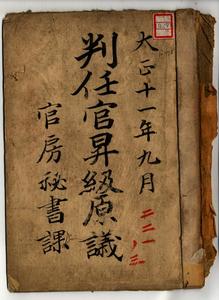 大正十一年九月
判任官昇級原議
官房秘書課
二二一
ノ三